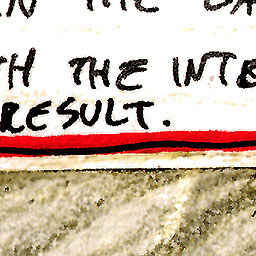 THE
TH THE INTE
RESULT.